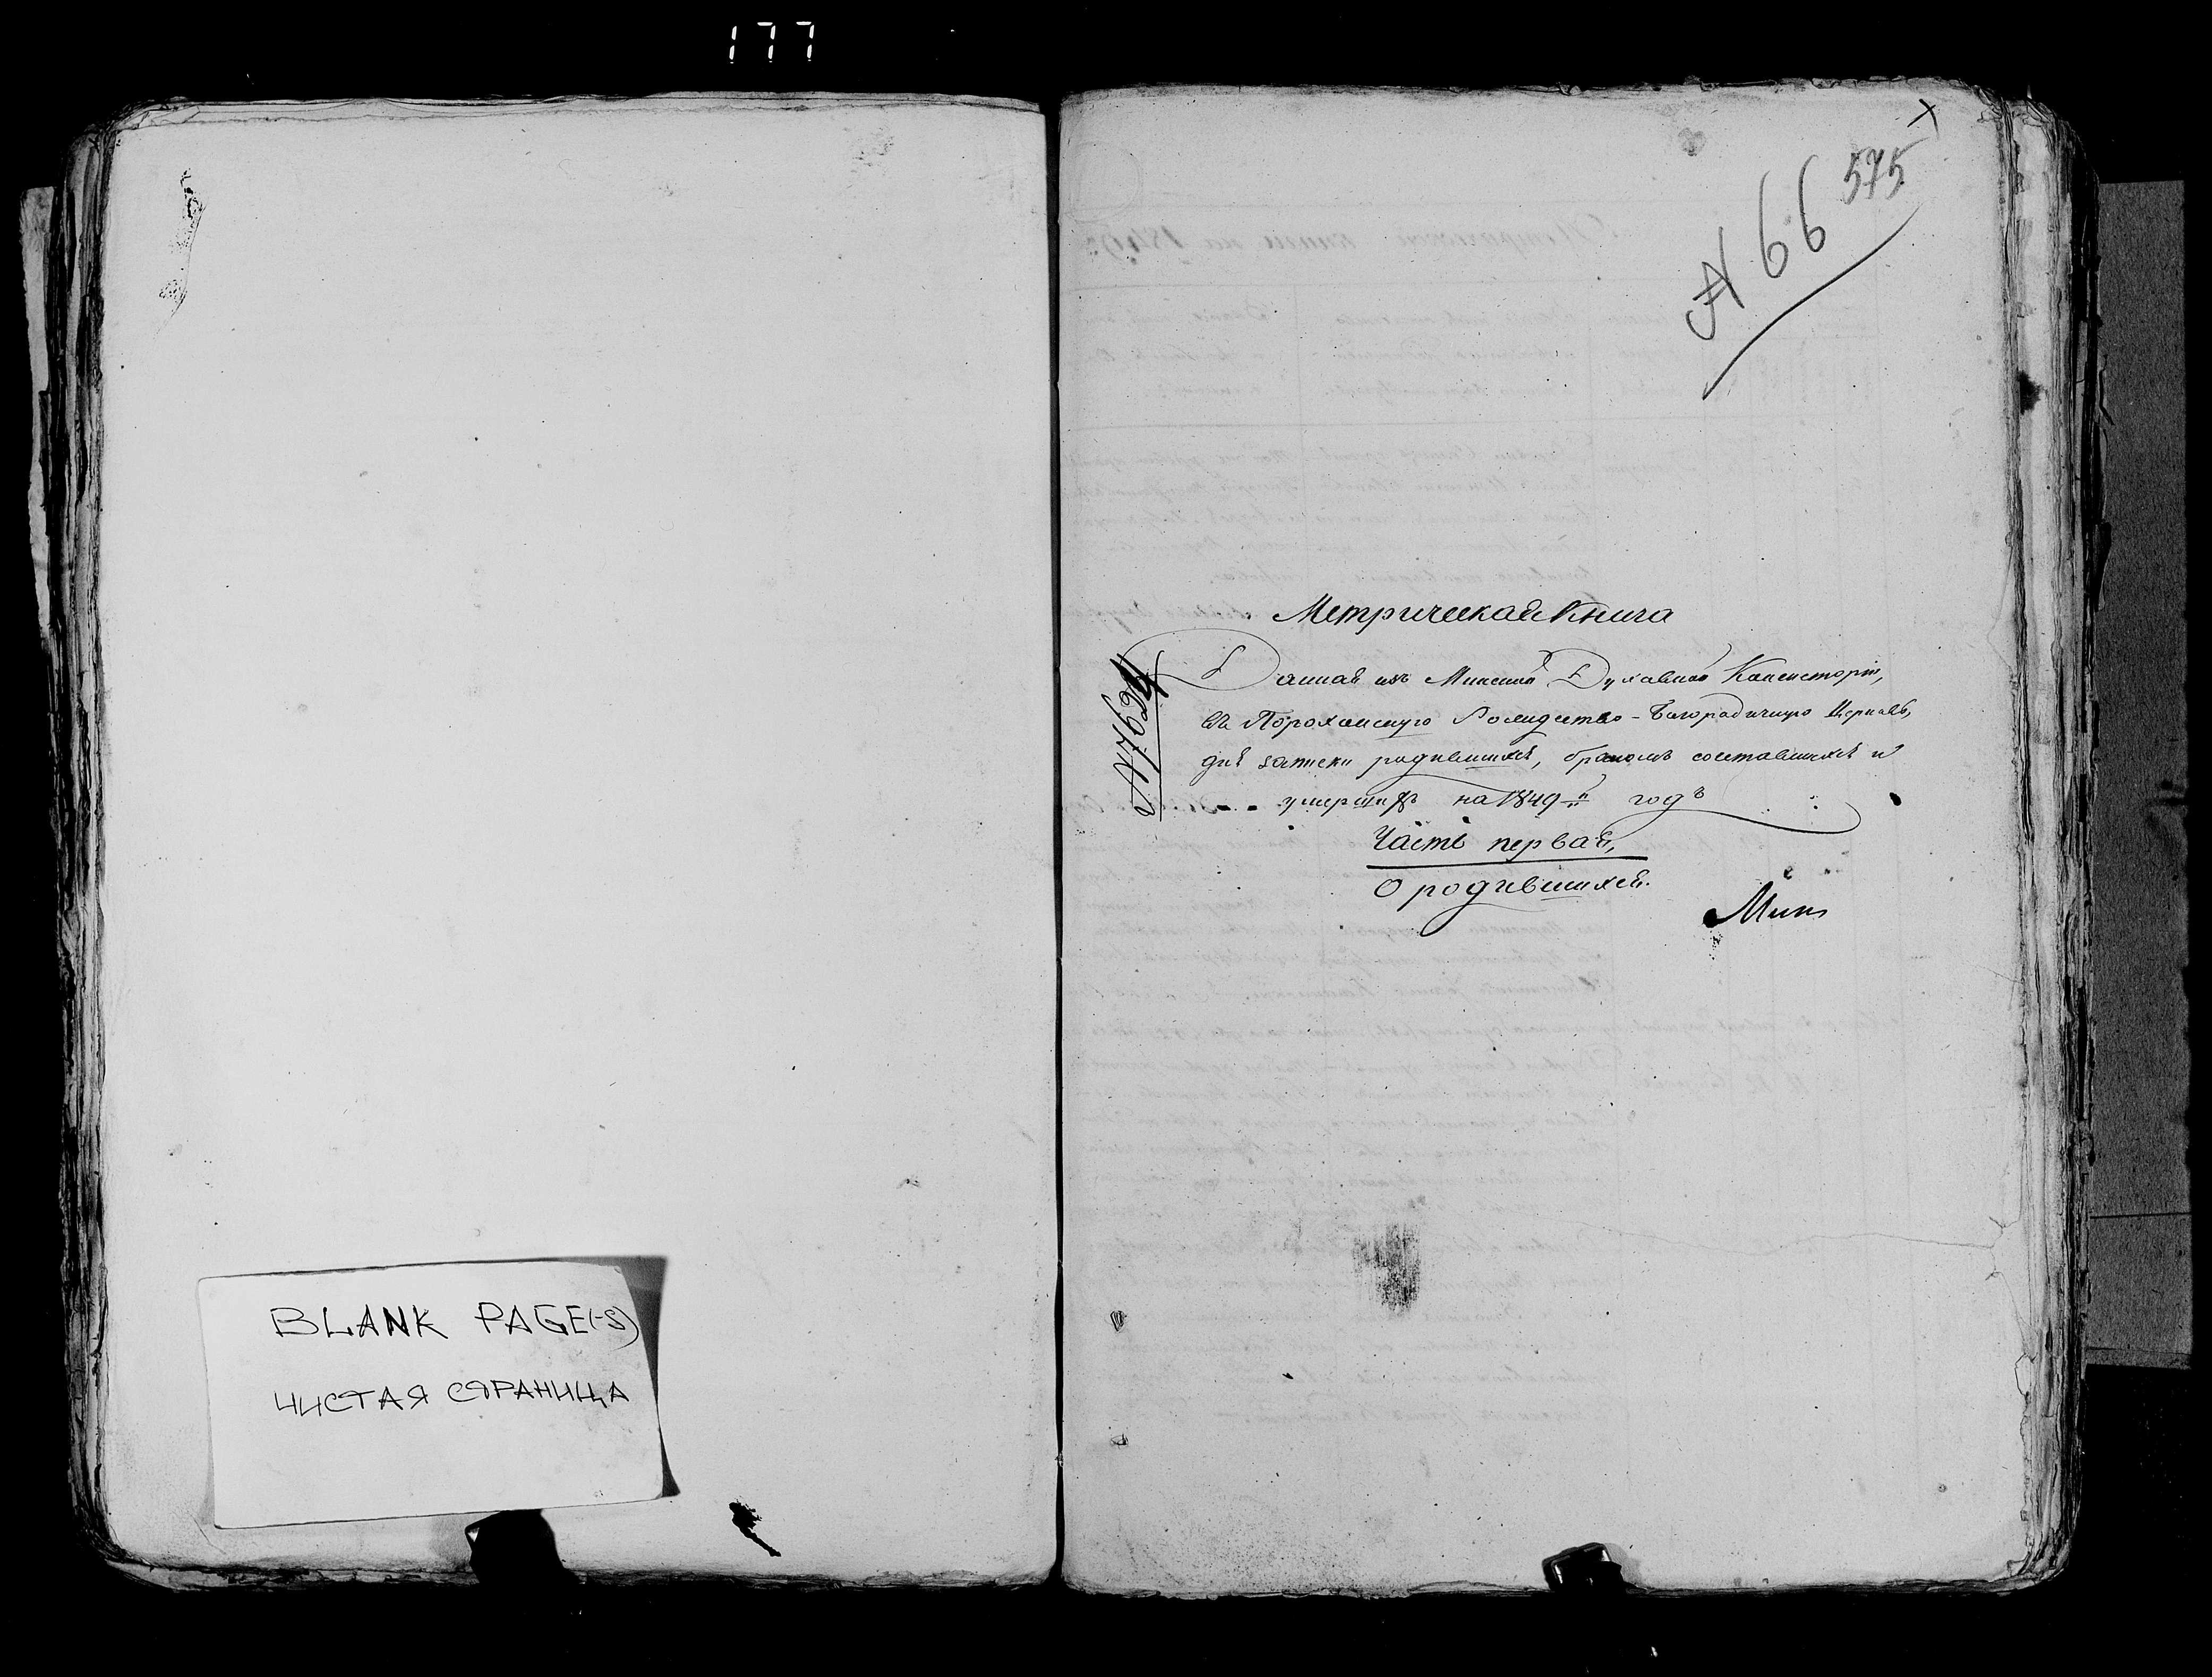 177
BLANK PAGE(-S)
ЧИСТАЯ СТРАНИЦА
х
575
№ 66
№ 7634
Метрическая Книга
Данная изъ Минской Духовной Консисторіи,
въ Порохонскую Рождество-Богородичную Церковь,
для записки родившихся, бракомъ сочетавшихся и
умершихъ на 1849й годъ
Часть первая,
О родившихся.
Мин